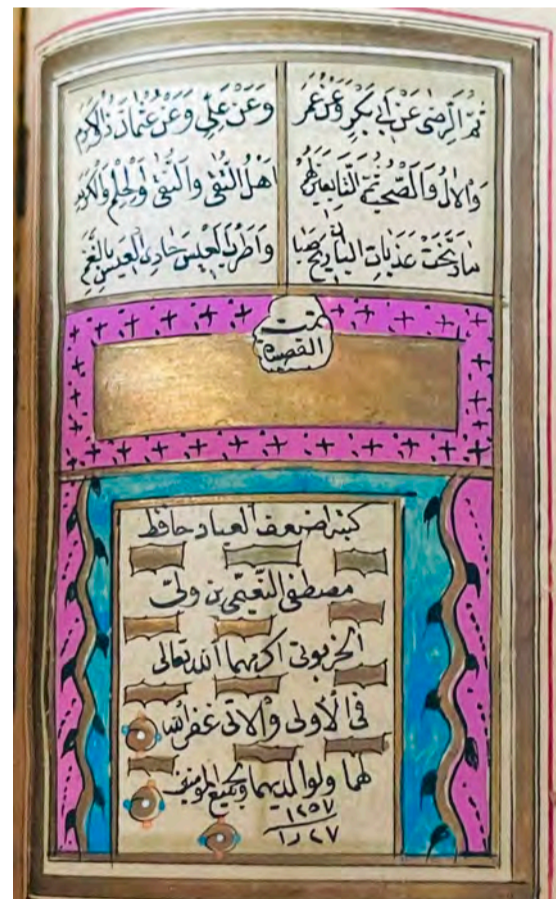 ثُمَّ الرِّضَى عَنْ اَبِى بَكْرٍ وَعَنْ عُمَرَ وَعَنْ عَلِىٍّ وَعَنْ عُثْمَانَ ذِى الْكَرَمِ
وَالْاٰلِ وَالصَّحْبِ ثُمَّ التَّابِعِينَ لَهُمْ اَهْلُ التُّقٰى وَالنَّقٰى وَالْحِلْمِ وَالْكَرَمِ
مَا رَنَّحَتْ عَذَبَاتِ الْبَانِ رِيحُ صَبَا وَاَطْرَبَ الْعِيسَ حَادِى الْعِيسِ بِالنَّغَمِ
تمت
القصيدة
كتبه اضعف العباد حافظ
مصطفى النعيمى بن ولى
الخربوتى اكرمهما الله تعالى
فى الاولى والاتى غفر الله
لهما ولوالديهما ولجميع المؤمنين
١٢٥٧
٢٧ را